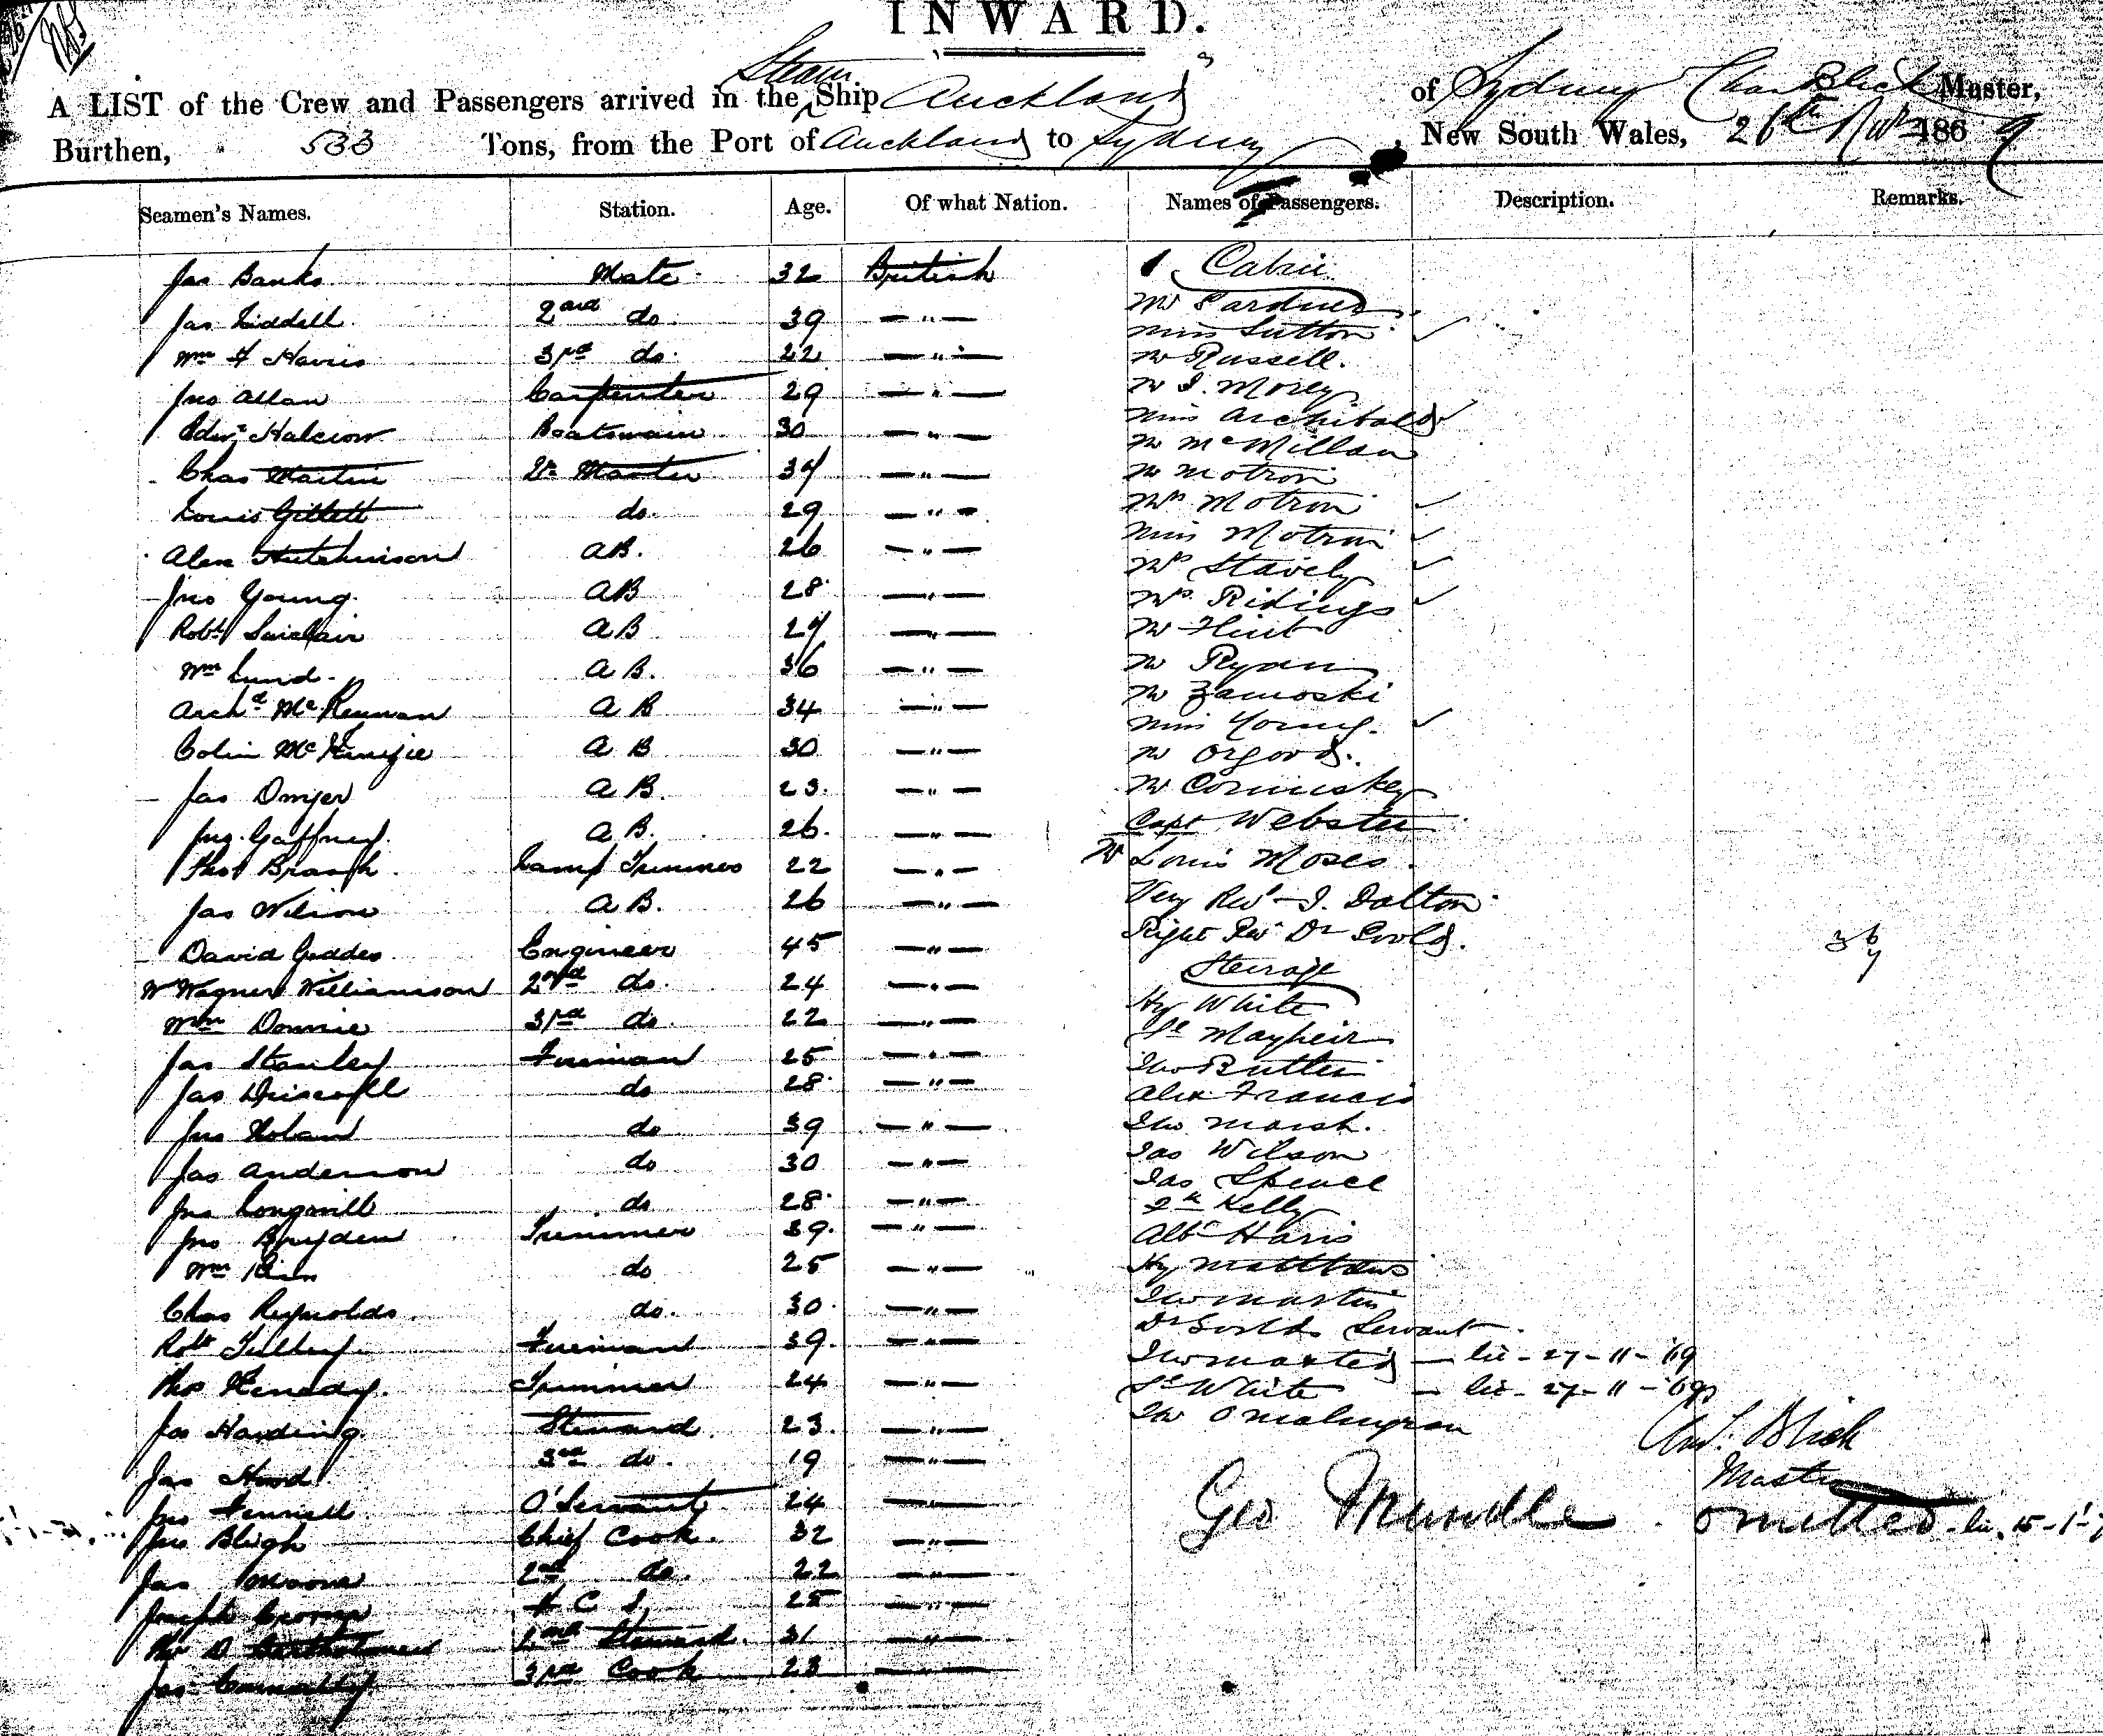 INWARD.
A LIST of the Crew and Passengers arrived in the Steam Ship Auckland of Sydney Chas Blick Master,
Burthen, 533 Tons, from the Port of Auckland to Sydney, New South Wales, 26th Novr 1869
Seamen's Names. Station. Age. Of what Nation. Names of Passengers. Description. Remarks.
Jas Banks Mate 32 British Cabin
Jas Liddell 2nd do. 39 —"— Mr Gardner
Miss Sutton ✓
Wm H Harris 3rd do. 22 —"— Mr Russell.
Jno Allan Carpenter 29 —"— Mr I. Morey
Miss Archibald ✓
Edwd Halcrow Boatswain 30 —"— Mr McMillan
Chas Martin Qr Master 34 —"— Mr Motron
Louis Gillett do. 29 —"— Mrs Motron ✓
Miss Motron ✓
Alex Hutchinson AB. 26 —"— Mrs Stavely ✓
Jno Young AB 28 —"— Mrs Ridings ✓
Robt Sinclair AB 24 —"— Mr Flint
Wm Lund AB. 36 —"— Mr Ryan
Mr Zamoski
Archd McKennan AB 34 —"— Miss Young. ✓
Colin McKenzie AB 30 —"— Mr Orgood.
Jas Dwyer AB. 23. —"— Mr Cormiskey
Jno. Gaffney. AB. 26. —"— Capt Webster
Thos Branch Lamp Trimmer 22 —"— Mr Louis Moses
Jas Wilson AB. 26 —"— Very Revd J. Dalton
David Geddes Engineer 45 —"— Right Revd Dr Goold. 36
7
Steerage
W Wagner Williamson 2nd do. 24 —"— Hy White
Wm Downie 3rd do. 22 —"— Mayheir
Jas Stanley Fireman 25 —"— Jno Butler
Jas Driscoll do 28 —"— Alex Francis
Jno Nolan do 39 —"— Jno Marsh.
Jas Wilson
Jas Anderson do 30 —"— Jas Spence
Jno Longmill do 28 —"— Kelly
Jno Bryden Trimmer 39. —"— Albt Haris
Wm do 25 —"— Hy Matthews
Chas Reynolds do. 30 —"— Jno Martin
Dr Goolds Servant
Robt Fireman 39. —"— Jno — lie - 27 - 11 - '69
Thos Kenedy. Trimmer 24 —"— White — lie - 27 - 11 - '69
Jas Harding Steward. 23. —"— Jno
Chas. Blick
Jas Hood 3rd do. 19 —"— Master
Jno Fennell O'Servant 24 —"— Geo Mundle. omitted - lie. 15 - 1 -
Jno Bligh Chief Cook. 32 —"—
Jas Moore 2nd do. 22 —"—
Joseph 25 —"—
Thos D Bartholomew 2nd Steward. 31 —"—
Jas Connolly 3rd Cook 23 —"—